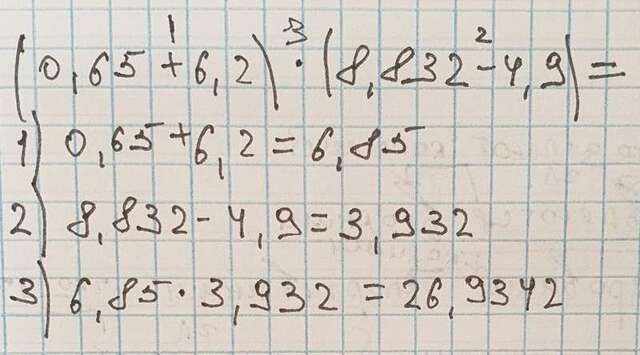 (0,65 + 6,2) · (8,832 - 4,9) =
1 3 2
1) 0,65 + 6,2 = 6,85
2) 8,832 - 4,9 = 3,932
3) 6,85 · 3,932 = 26,9342